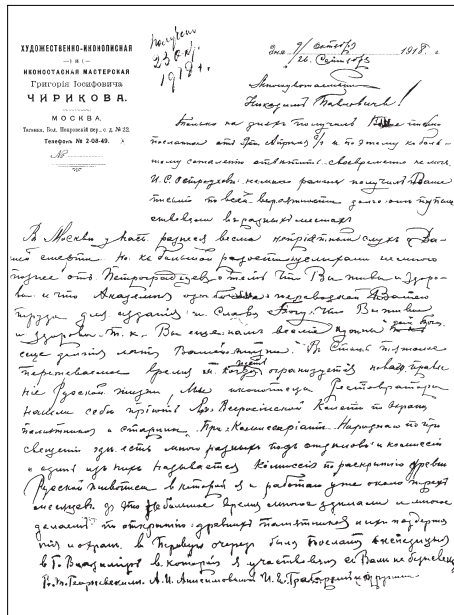 ХУДОЖЕСТВЕННО-ИКОНОПИСНАЯ
— И —
ИКОНОСТАСНАЯ МАСТЕРСКАЯ
Григорія Іосифовича
ЧИРИКОВА.
МОСКВА.
Телефонъ № 2-08-49.
№
Получ.
23 окт.
1918 г.
Дня 9/ октября 1918. г.
/26. Сентября
Многоуважаемый
Никодимъ Павловичъ!
Только на дняхъ получилъ Ваше
посланное отъ Апреля и поэтому къ боль-
шому сожаленію ответить своевременно не могъ
И. С. Остроуховъ немного раньше получилъ Ваше
письмо по всей вероятности долго они путеше-
ствовали въ разныхъ местахъ
Въ Москве у насъ разнесся весьма непріятный слухъ о Ва-
шей смерти. но къ большой радости услыхали немного
позднее отъ Петроградцевъ что Вы живы и здоро-
вы и что Академія
труды для изданія и Слава Богу что Вы живы
и здоровы т. к. Вы еще намъ весьма нужны
еще долгія лета Вашей жизни. Въ столь тяжелое
переживаемое время организуется новое правле
ніе Русской жизни! Мы иконописцы Реставраторы
нашли себе пріютъ Всероссійской Колегіи по охране
памятниковъ и старины При Коммиссаріате Народнаго про
свещенія где есть много разныхъ подъотделовъ и комиссій
и одинъ изъ нихъ называется Комиссія по раскрытію древней
Русской живописи въ которой я и работаю уже около трехъ
месяцевъ за это небольшое время много сделали и много
делаемъ по открытію древнихъ памятниковъ и ихъ поддержа
нія и охраны. въ первую очередь была послана экспедиція
въ Г. Владиміръ въ которой я участвовалъ съ Вами не безызвест
В. Т. Георгіевскимъ. А. И. Анисимовымъ И. Э. Грабаремъ и другими